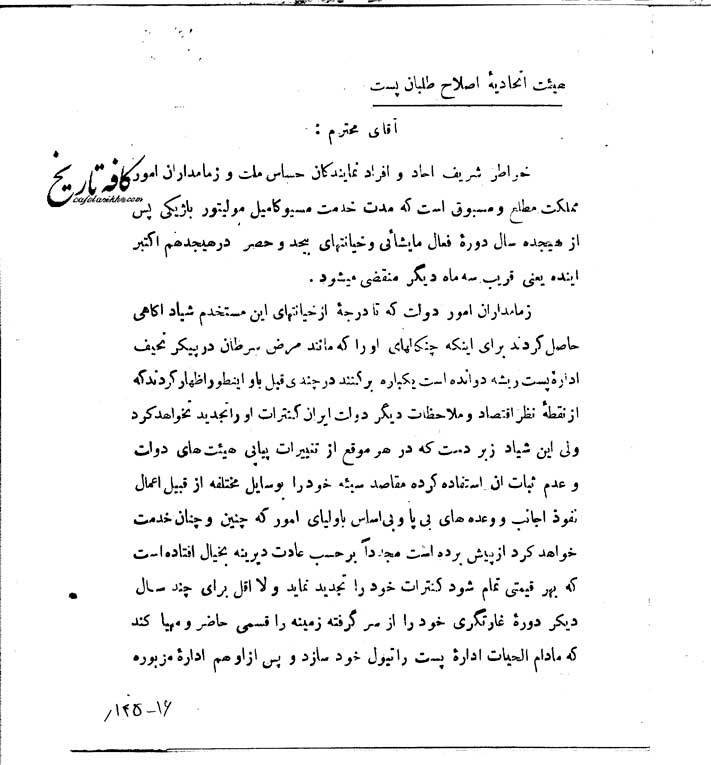 هیئت اتحادیهٔ اصلاح طلبان پست
آقای محترم :
خراطر شریف احاد و افراد نمایندکان حساس ملت و زمامداران امور
کافه تاریخ
cafetarikh.com
مملکت مطلع و مسبوق است که مدت خدمت مسیو کامیل مولیتور باژیکی پس
از هیجده سال دورهٔ فعال مایشائی و خیانتهای بیحد و حصر در هیجدهم اکتبر
اینده یعنی قریب سه ماه دیگر منقضی میشود .
زمامداران امور دولت که تا درجهٔ از خیانتهای این مستخدم شیاد اکاهی
حاصل کردند برای اینکه چنکالهای او را که مانند مرض سرطان در پیکر نحیف
ادارهٔ پست ریشه دوانده است یکباره برکنند در چندی قبل باو اینطور اظهار کردند که
از نقطهٔ نظر اقتصاد و ملاحظات دیگر دولت ایران کنترات او را تجدید نخواهد کرد
ولی این شیاد زبر دست که در هر موقع از تغییرات پیاپی هیئت های دولت
و عدم ثبات ان استفاده کرده مقاصد سیئه خود را بوسایل مختلفه از قبیل اعمال
نفوذ اجانب و وعده های بی پا و بی اساس باولیای امور که چنین و چنان خدمت
خواهد کرد از پیش برده است مجدداً بر حسب عادت دیرینه بخیال افتاده است
که بهر قیمتی تمام شود کنترات خود را تجدید نماید و لا اقل برای چند سال
دیکر دورهٔ غارتگری خود را از سر گرفته زمینه را قسمی حاضر و مهیا کند
که مادام الحیات ادارهٔ پست را تیول خود سازد و پس از او هم ادارهٔ مزبوره
۱۴۵-۱۶